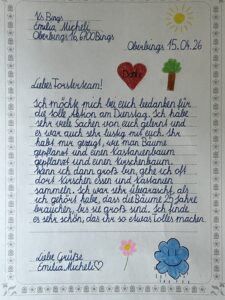 Vs Bings
Emilia Micheli
Oberbings 16, 6700 Bings
Oberbings 15.04.26
Danke
Liebes Forsterteam!
Ich möchte mich bei euch bedanken für
die tolle Aktion am Dienstag. Ich habe
sehr viele Sachen von euch gelernt und
es war auch sehr lustig mit euch. Ihr
habt mir gezeigt, wie man Bäume
gepflanzt und einen Kastanienbaum
gepflanzt und einen Kirschenbaum.
Wenn ich dann groß bin, gehe ich oft
dort Kirschen essen und Kastanien
sammeln. Ich war sehr überrascht, als
ich gehört habe, dass die Bäume 25 Jahre
brauchen, bis sie groß sind. Ich finde
es sehr schön, das ihr so etwas tolles machen.
Liebe Grüße
Emilia Micheli